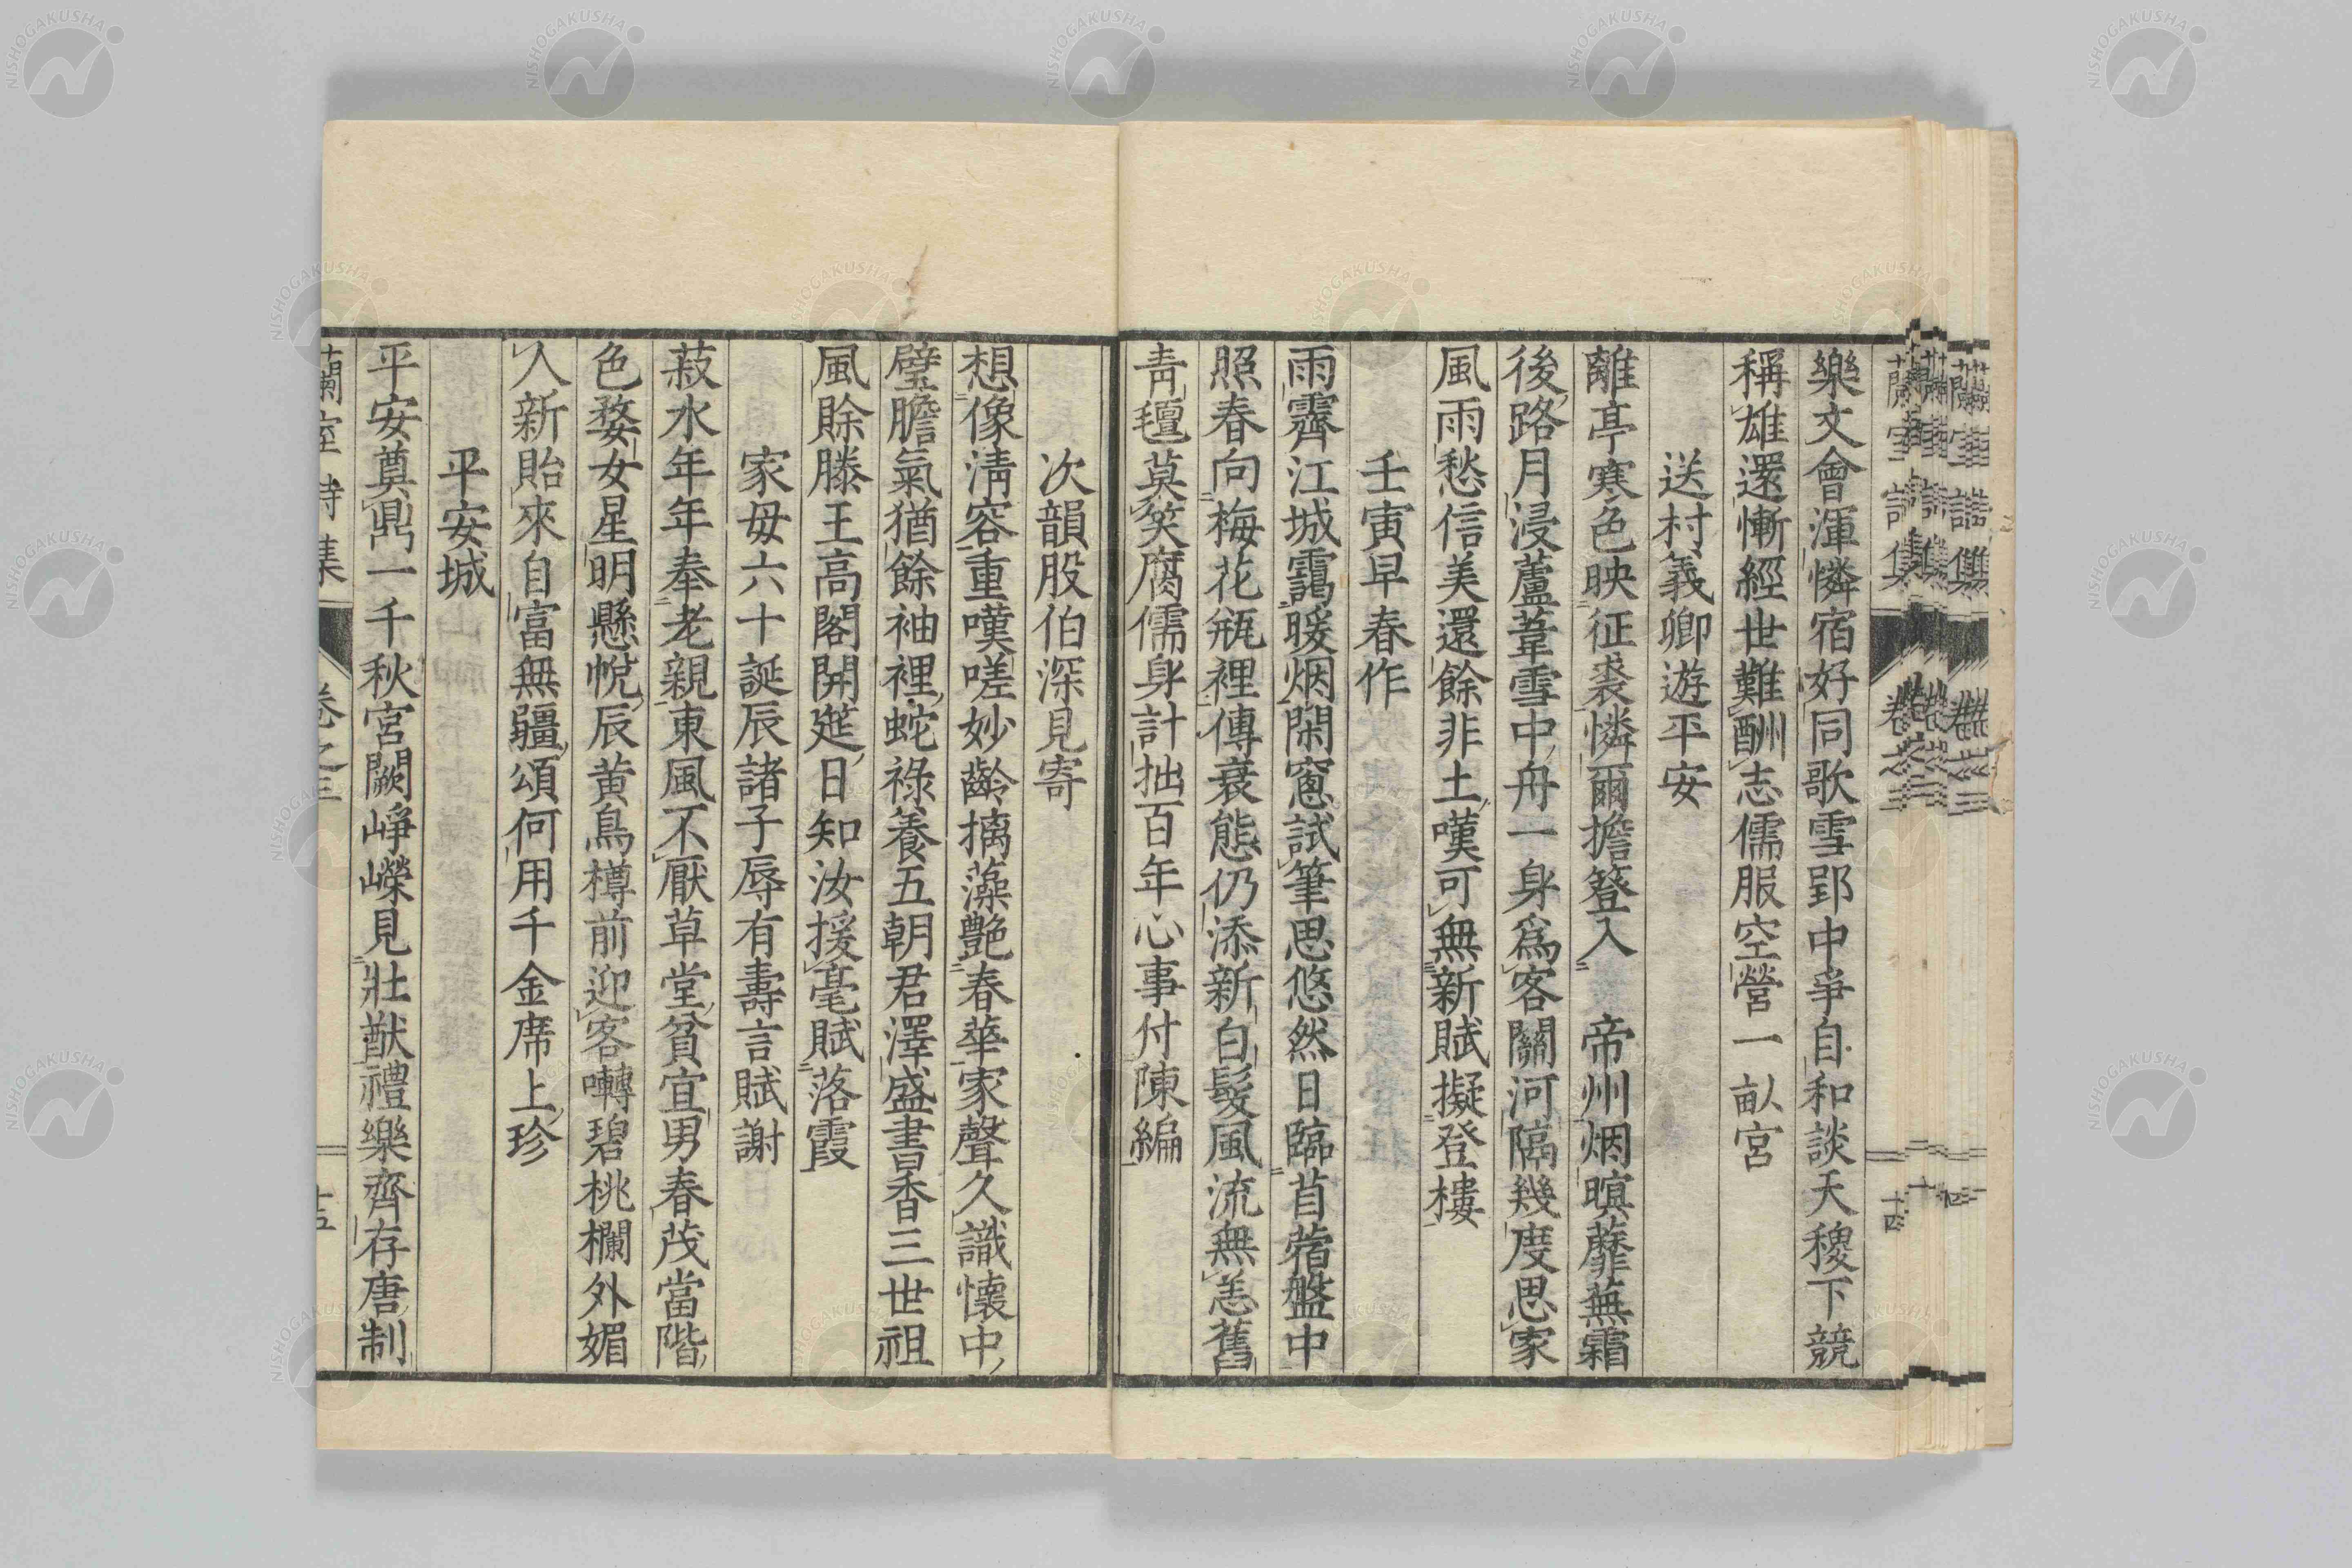 樂文會渾憐宿好同歌雪郢中爭自和談天稷下競
稱雄還慚經世難酬志儒服空營一畝宮
送村義卿遊平安
離亭寒色映征裘憐爾擔簦入 帝州烟暝蘼蕪霜
後路月浸蘆葦雪中舟一身爲客關河隔幾度思家
風雨愁信美還餘非土嘆可無新賦擬登樓
壬寅早春作
雨霽江城靄暖烟閑窻試筆思悠然日臨苜蓿盤中
照春向梅花瓶裡傳衰態仍添新白髮風流無恙舊
青氊莫笑腐儒身計拙百年心事付陳編
次韻股伯深見寄
想像淸容重嘆嗟妙齡摛藻艶春華家聲久識懷中
璧膽氣猶餘袖裡蛇祿養五朝君澤盛書香三世祖
風賒滕王高閣開筵日知汝援毫賦落霞
家毋六十誕辰諸子辱有壽言賦謝
菽水年年奉老親東風不厭草堂貧宜男春茂當階
色婺女星明懸帨辰黃鳥樽前迎客囀碧桃欄外媚
人新貽來自富無疆頌何用千金席上珍
平安城
平安奠鼎一千秋宮闕崢嶸見壯猷禮樂齊存唐制
蘭室詩集 卷之三 十五
NISHOGAKUSHA